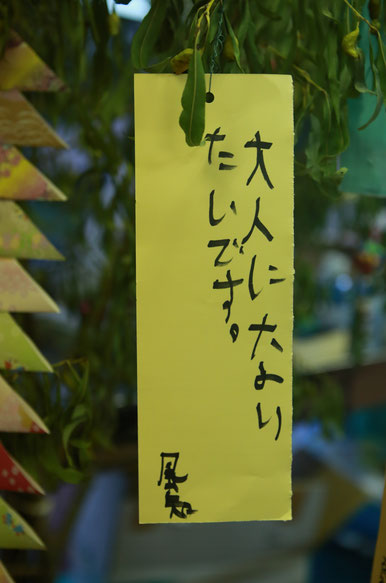 大人になり
たいです。
風知